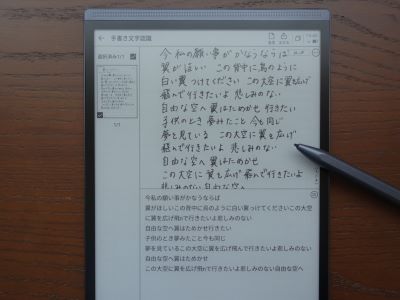 手書き文字認識
選択済み1/1
1/1
今私の願い事がかなうならば
翼がほしい この背中に鳥のように
白い翼つけてください この大空に翼を広げ
飛んで行きたいよ 悲しみのない
自由な空へ 翼はためかせ 行きたい
子供のとき 夢みたこと 今も同じ
夢を見ている この大空に翼を広げ
飛んで行きたいよ 悲しみのない
自由な空へ 翼はためかせ
この大空に翼を広げ 飛んで行きたいよ
悲しみのない 自由な空へ
今私の願い事がかなうならば
翼がほしいこの背中に鳥のように白い翼つけてくださいこの大空
に翼を広げ飛んで行きたいよ悲しみのない
自由な空へ翼はためかせ行きたい
子供のとき夢みたこと今も同じ
夢を見ているこの大空に翼を広げ飛んで行きたいよ悲しみのない
自由な空へ翼はためかせ
この大空に翼を広げ飛んで行きたいよ悲しみのない自由な空へ